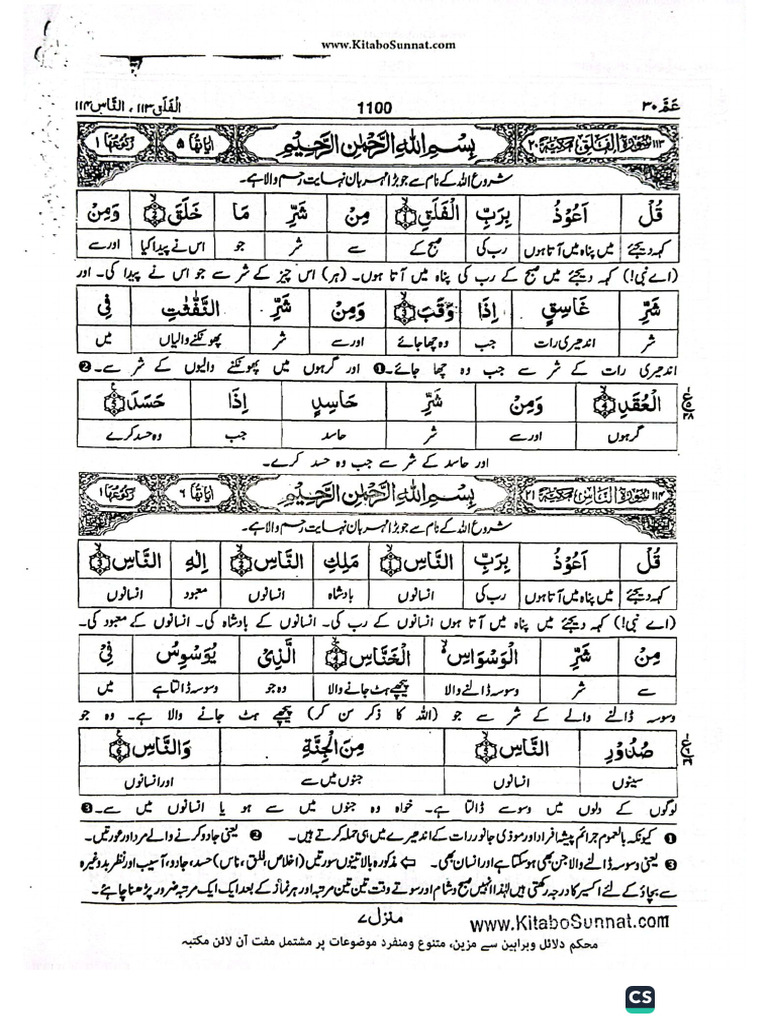 www.KitaboSunnat.com
عَمَّ ۳۰ 1100 الفلق ۱۱۳، الناس ۱۱۴
۱۱۳ سُوْرَةُ الْفَلَقِ مَكِّيَّةٌ ۲۰ بِسْمِ اللّٰهِ الرَّحْمٰنِ الرَّحِيْمِ اٰيَاتُهَا ۵ رُكُوْعُهَا ۱
شروع اللہ کے نام سے جو بڑا مہربان نہایت رحم والا ہے۔
قُلْ اَعُوْذُ بِرَبِّ الْفَلَقِ ۙ﴿1﴾ مِنْ شَرِّ مَا خَلَقَ ۙ﴿2﴾ وَمِنْ
کہہ دیجئے میں پناہ میں آتا ہوں رب کی صبح کے سے شر جو اس نے پیدا کیا اور سے
(اے نبی!) کہہ دیجئے میں صبح کے رب کی پناہ میں آتا ہوں۔ (ہر) اس چیز کے شر سے جو اس نے پیدا کی۔ اور
شَرِّ غَاسِقٍ اِذَا وَقَبَ ۙ﴿3﴾ وَمِنْ شَرِّ النَّفّٰثٰتِ فِي
شر اندھیری رات جب وہ چھا جائے اور سے شر پھونکنے والیاں میں
اندھیری رات کے شر سے جب وہ چھا جائے۔❶ اور گرہوں میں پھونکنے والیوں کے شر سے۔❷
الْعُقَدِ ۙ﴿4﴾ وَمِنْ شَرِّ حَاسِدٍ اِذَا حَسَدَ ﴿5﴾
گرہوں اور سے شر حاسد جب وہ حسد کرے
اور حاسد کے شر سے جب وہ حسد کرے۔
۱۱۴ سُوْرَةُ النَّاسِ مَكِّيَّةٌ ۲۱ بِسْمِ اللّٰهِ الرَّحْمٰنِ الرَّحِيْمِ اٰيَاتُهَا ۶ رُكُوْعُهَا ۱
شروع اللہ کے نام سے جو بڑا مہربان نہایت رحم والا ہے۔
قُلْ اَعُوْذُ بِرَبِّ النَّاسِ ۙ﴿1﴾ مَلِكِ النَّاسِ ۙ﴿2﴾ اِلٰهِ النَّاسِ ۙ﴿3﴾
کہہ دیجئے میں پناہ میں آتا ہوں رب کی انسانوں بادشاہ انسانوں معبود انسانوں
(اے نبی!) کہہ دیجئے میں پناہ میں آتا ہوں انسانوں کے رب کی۔ انسانوں کے بادشاہ کی۔ انسانوں کے معبود کی۔
مِنْ شَرِّ الْوَسْوَاسِ ۙ الْخَنَّاسِ ۙ﴿4﴾ الَّذِيْ يُوَسْوِسُ فِيْ
سے شر وسوسہ ڈالنے والا پیچھے ہٹ جانے والا وہ جو وسوسہ ڈالتا ہے میں
وسوسہ ڈالنے والے کے شر سے جو (اللہ کا ذکر سن کر) پیچھے ہٹ جانے والا ہے۔ وہ جو
صُدُوْرِ النَّاسِ ۙ﴿5﴾ مِنَ الْجِنَّةِ وَالنَّاسِ ﴿6﴾
سینوں انسانوں جنوں میں سے اور انسانوں
لوگوں کے دلوں میں وسوسے ڈالتا ہے۔ خواہ وہ جنوں میں سے ہو یا انسانوں میں سے۔❸
❶ کیونکہ بالعموم جرائم پیشہ افراد اور موذی جانور رات کے اندھیرے میں ہی حملہ کرتے ہیں۔ ❷ یعنی جادو کرنے والے مرد اور عورتیں۔
❸ یعنی وسوسہ ڈالنے والا جن بھی ہو سکتا ہے اور انسان بھی۔ ⇦ مذکورہ بالا تینوں سورتیں (اخلاص، فلق، ناس) حسد، جادو، آسیب اور نظر بد وغیرہ
سے بچاؤ کے لئے اکسیر کا درجہ رکھتی ہیں لہٰذا انہیں صبح و شام اور سوتے وقت تین تین مرتبہ اور ہر نماز کے بعد ایک ایک مرتبہ ضرور پڑھنا چاہئے۔
منزل ۷ www.KitaboSunnat.com
محکم دلائل وبراہین سے مزین، متنوع ومنفرد موضوعات پر مشتمل مفت آن لائن مکتبہ
CS